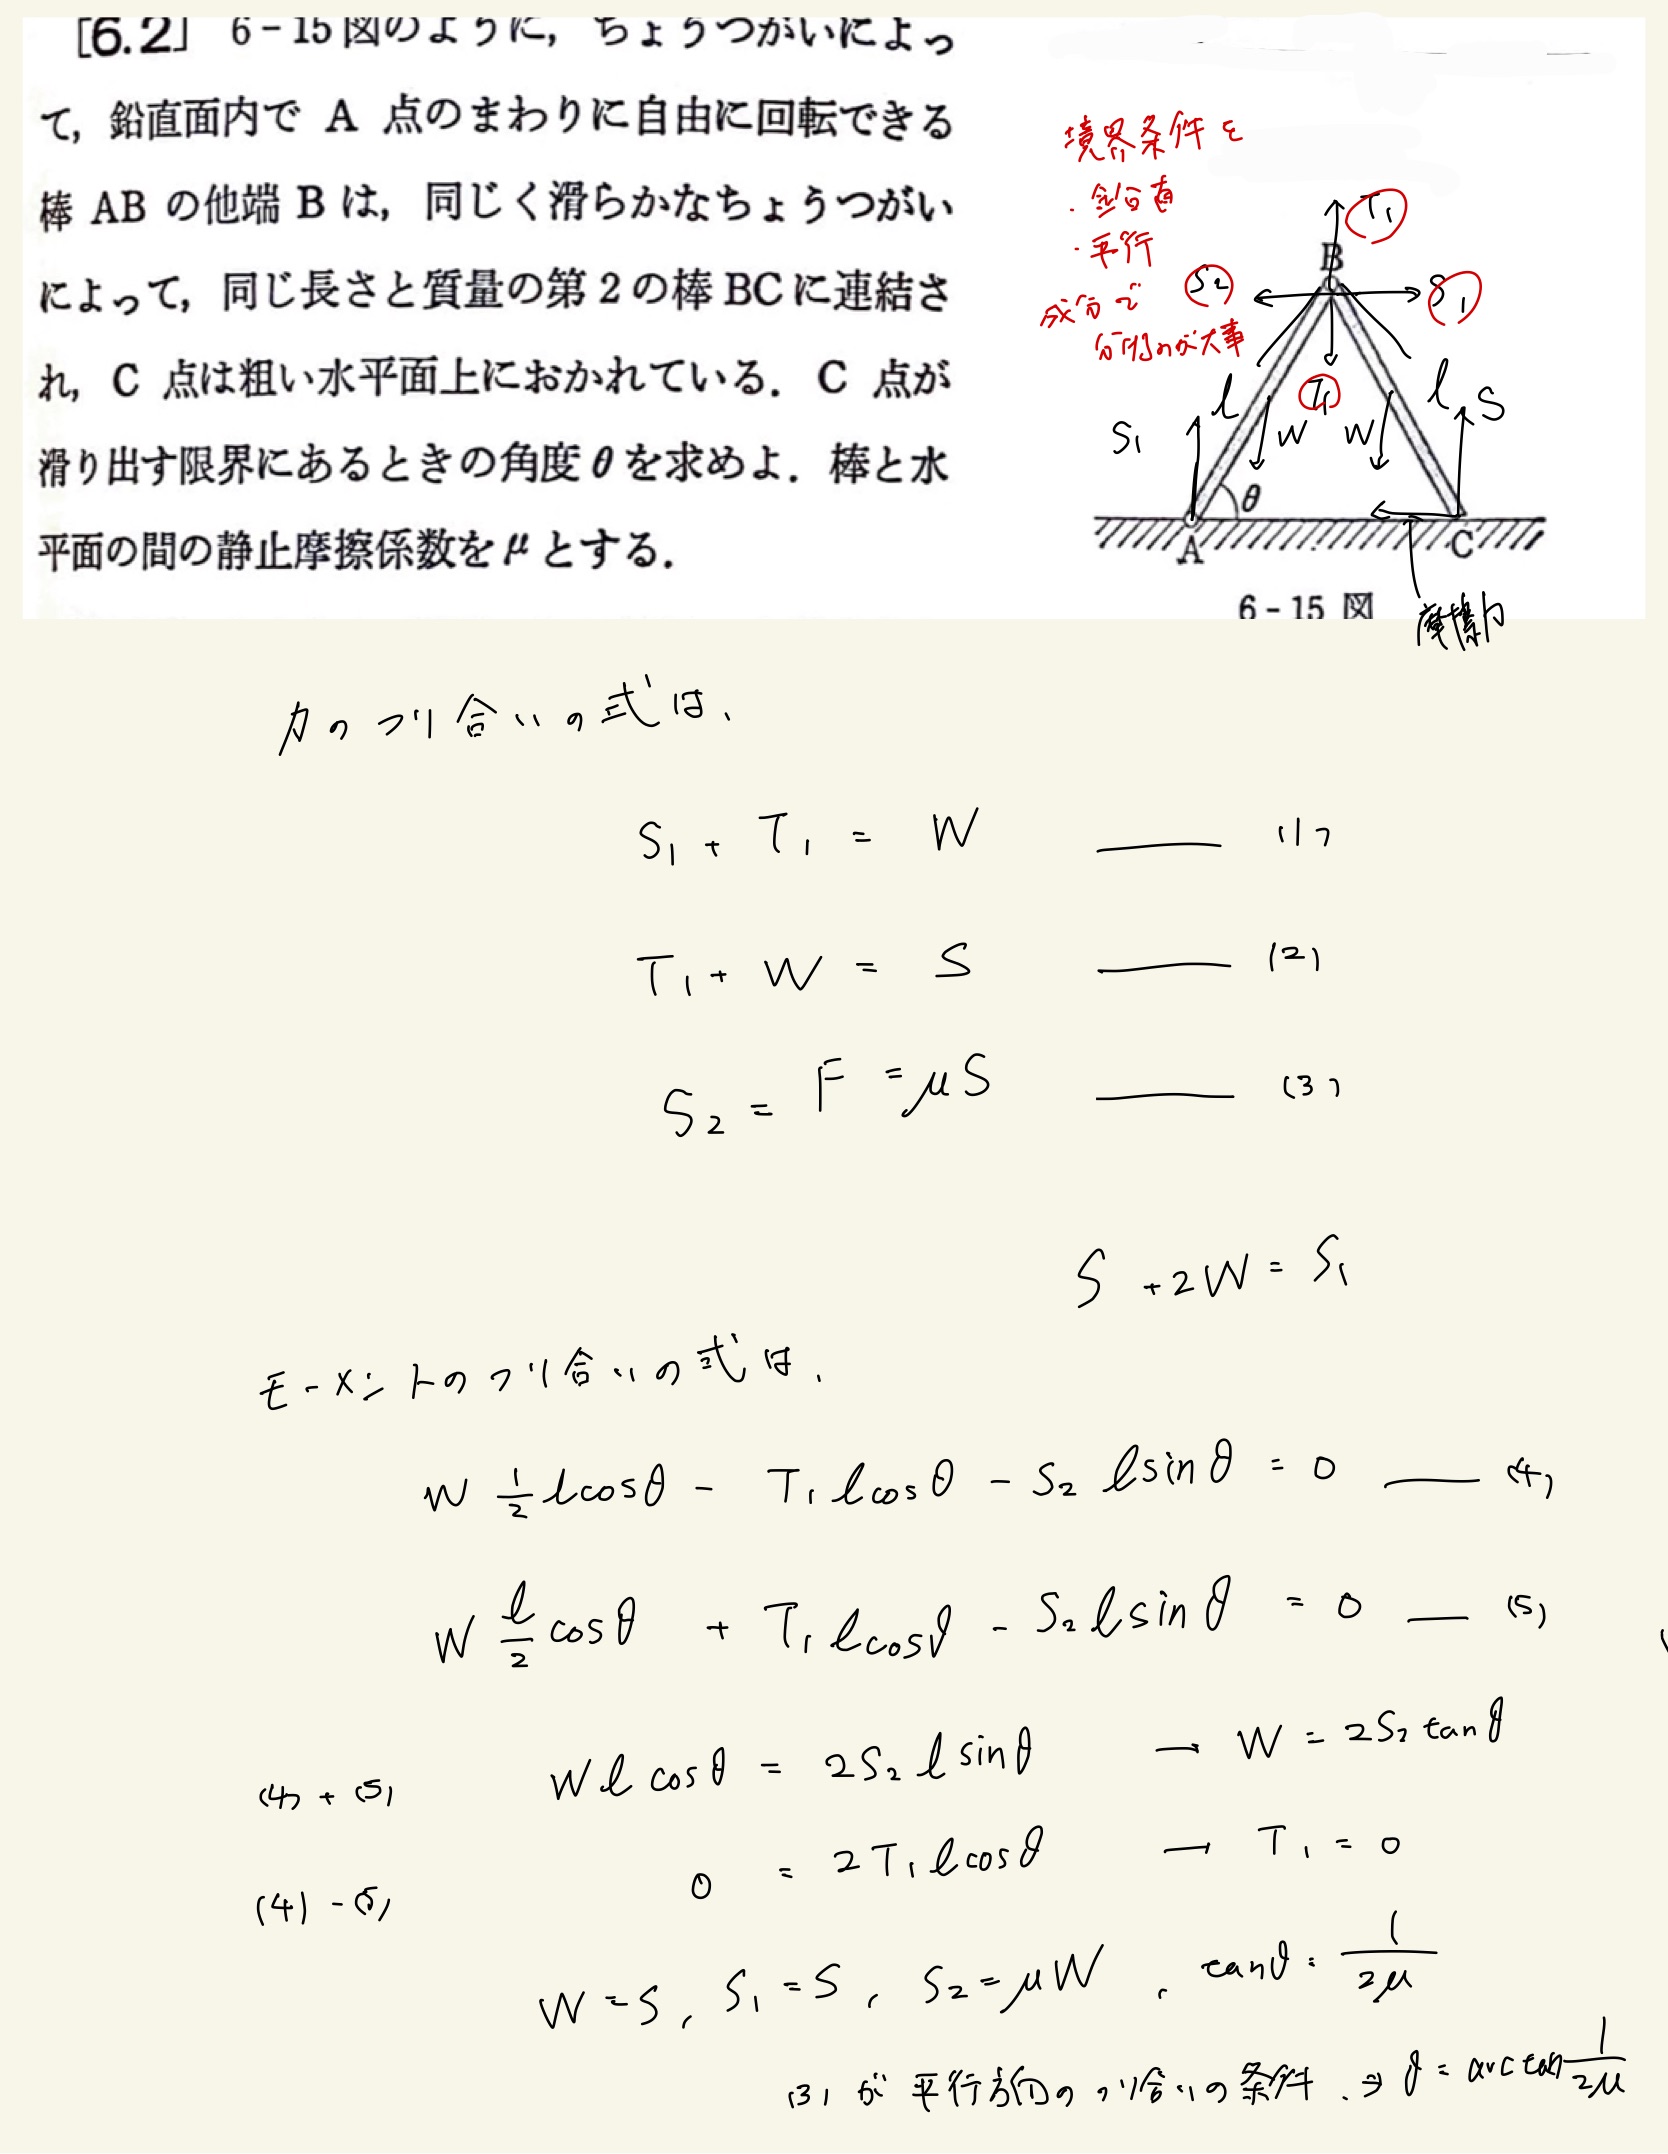 [6.2] 6-15図のように，ちょうつがいによっ
て，鉛直面内で A 点のまわりに自由に回転できる
棒 AB の他端 B は，同じく滑らかなちょうつがい
によって，同じ長さと質量の第2の棒BCに連結さ
れ，C 点は粗い水平面上におかれている．C 点が
滑り出す限界にあるときの角度θを求めよ．棒と水
平面の間の静止摩擦係数をμとする．
境界条件を
・鉛直
・平行
成分で
分けるのが大事
T₁
B
S₂
S₁
T₁
l
l
S
S₁
W
W
θ
A
C
6-15 図
摩擦力
力のつり合いの式は、
S₁ + T₁ = W —— (1)
T₁ + W = S —— (2)
S₂ = F = μS —— (3)
S + 2W = S₁
モーメントのつり合いの式は、
W 1/2 l cosθ - T₁ l cosθ - S₂ l sinθ = 0 —— (4)
W l/2 cosθ + T₁ l cosθ - S₂ l sinθ = 0 —— (5)
(4) + (5) W l cosθ = 2S₂ l sinθ → W = 2S₂ tanθ
(4) - (5) 0 = 2T₁ l cosθ → T₁ = 0
W = S, S₁ = S, S₂ = μW, tanθ = 1/2μ
(3) が平行方向のつり合いの条件. ⇒ θ = arctan 1/2μ